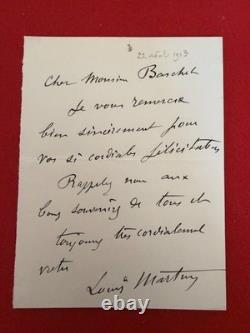 22 août 1913
Cher Monsieur Baschet
Je vous remercie
bien sincèrement pour
vos si cordiales félicitations
Rappelez nous aux
bons souvenirs de tous et
toujours très cordialement
votre
Louis Martin